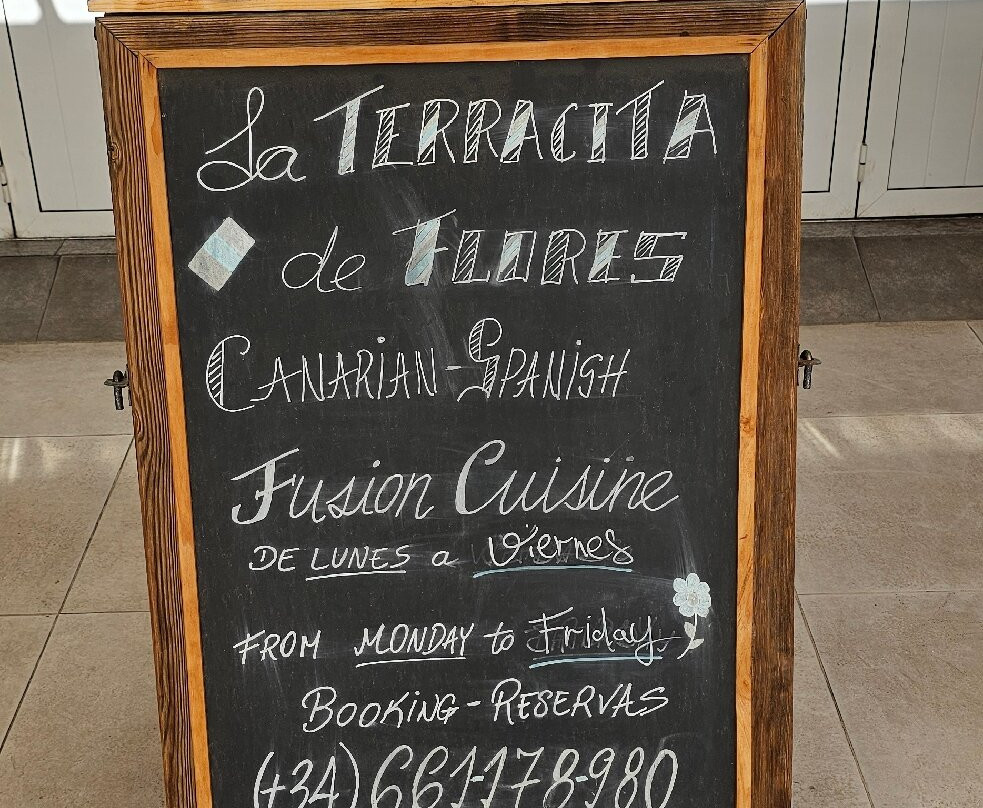 La TERRACITA
de FLORES
CANARIAN-SPANISH
Fusion Cuisine
DE LUNES a Viernes
FROM MONDAY to Friday
BOOKING-RESERVAS
(+34) 661-178-980